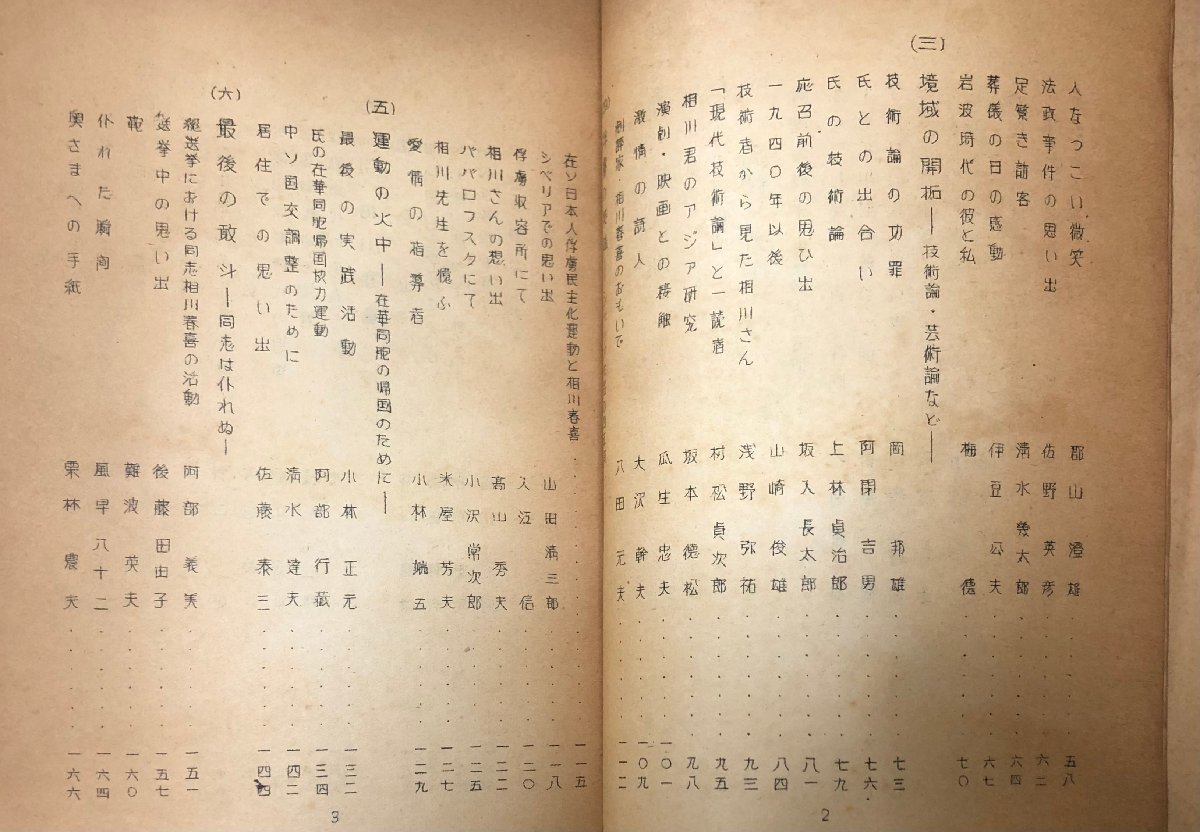 人なつこい微笑 郡山澄雄 五八
法政事件の思い出 佐野英彦 六二
足繁き訪客 清水幾太郎 六四
葬儀の日の感動 伊豆公夫 六七
岩波時代の彼と私 梅徳 七〇
(三) 境域の開拓―技術論・芸術論など―
技術論の功罪 岡邦雄 七三
氏との出合い 阿閉吉男 七六
氏の技術論 上林貞治郎 七九
応召前後の思ひ出 坂入長太郎 八一
一九四〇年以後 山崎俊雄 八四
技術者から見た相川さん 浅野弥祐 九三
「現代技術論」と一読者 村松貞次郎 九五
相川君のアジア研究 坂本徳松 九八
演劇・映画との接触 瓜生忠夫 一〇一
激情の詩人 大沢幹夫 一〇九
相川春喜のおもいで 八田元夫 一一二
2
在ソ日本人俘虜民主化運動と相川春喜 一一五
シベリアでの思い出 山田清三郎 一一八
俘虜収容所にて 入江信 一二〇
相川さんの想い出 高山秀夫 一二二
ハバロフスクにて 小沢常次郎 一二五
相川先生を憶ふ 米屋芳夫 一二七
愛情の指導者 小林端五 一二九
(五) 運動の火中―在華同胞の帰国のために―
最後の実践活動 小林正元 一三二
氏の在華同胞帰国協力運動 阿部行蔵 一三四
中ソ国交調整のために 清水達夫 一四二
居住での思い出 佐藤泰三 一四四
(六) 最後の敢斗―同志は仆れぬ―
総選挙における同志相川春喜の活動 阿部義美 一五一
選挙中の思い出 後藤田由子 一五七
靴 難波英夫 一六〇
仆れた瞬間 風早八十二 一六四
奥さまへの手紙 栗林農夫 一六六
3